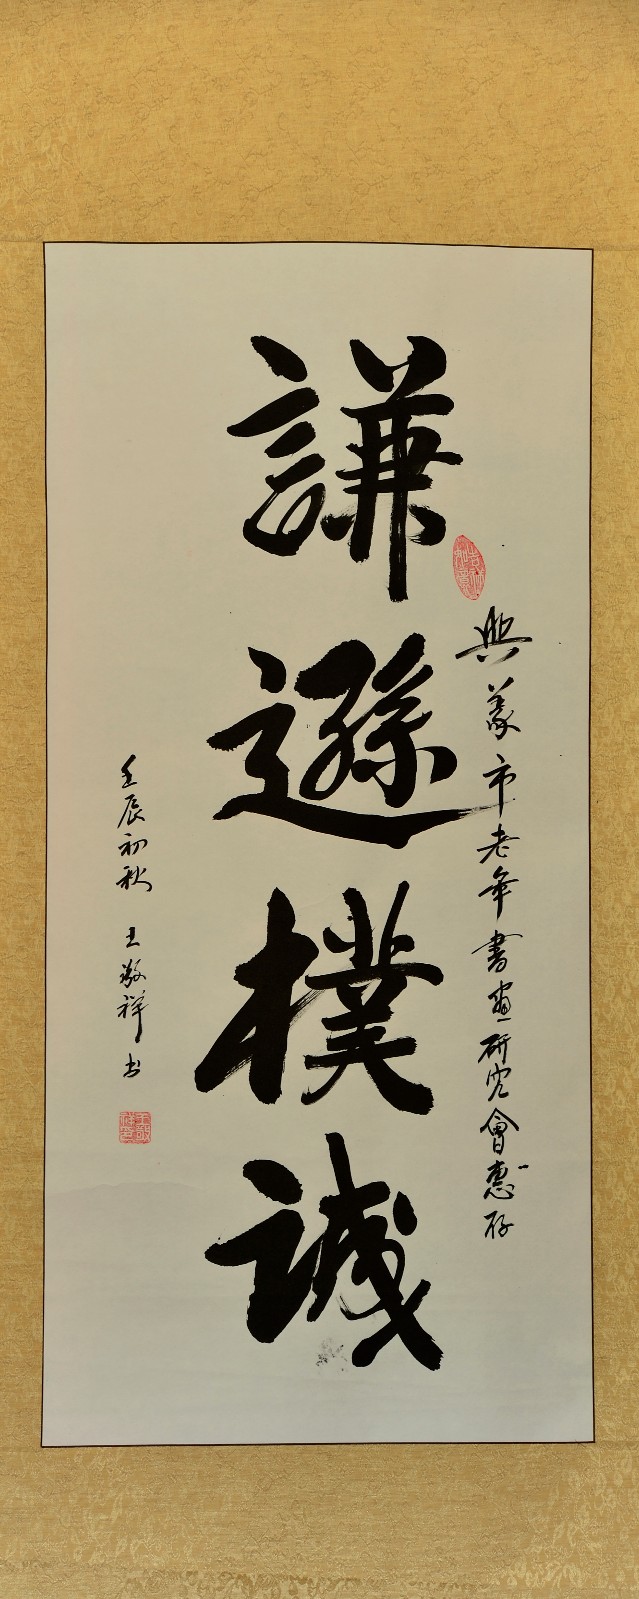 興義市老年書畫研究會惠存
謙遜樸誠
壬辰初秋 王敬祥书